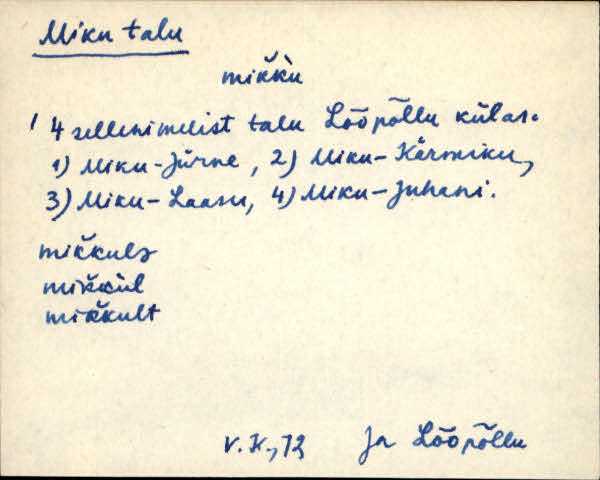 Miku talu
mik̆k̀u
4 sellenimelist talu Lõopõllu külas.
1) Miku-Jürne, 2) Miku-Kärmiku,
3) Miku-Laasu, 4) Miku-Juhani.
mik̆kulə
mik̆kùl
mik̆kult
V. K., 72 Jõ Lõopõllu